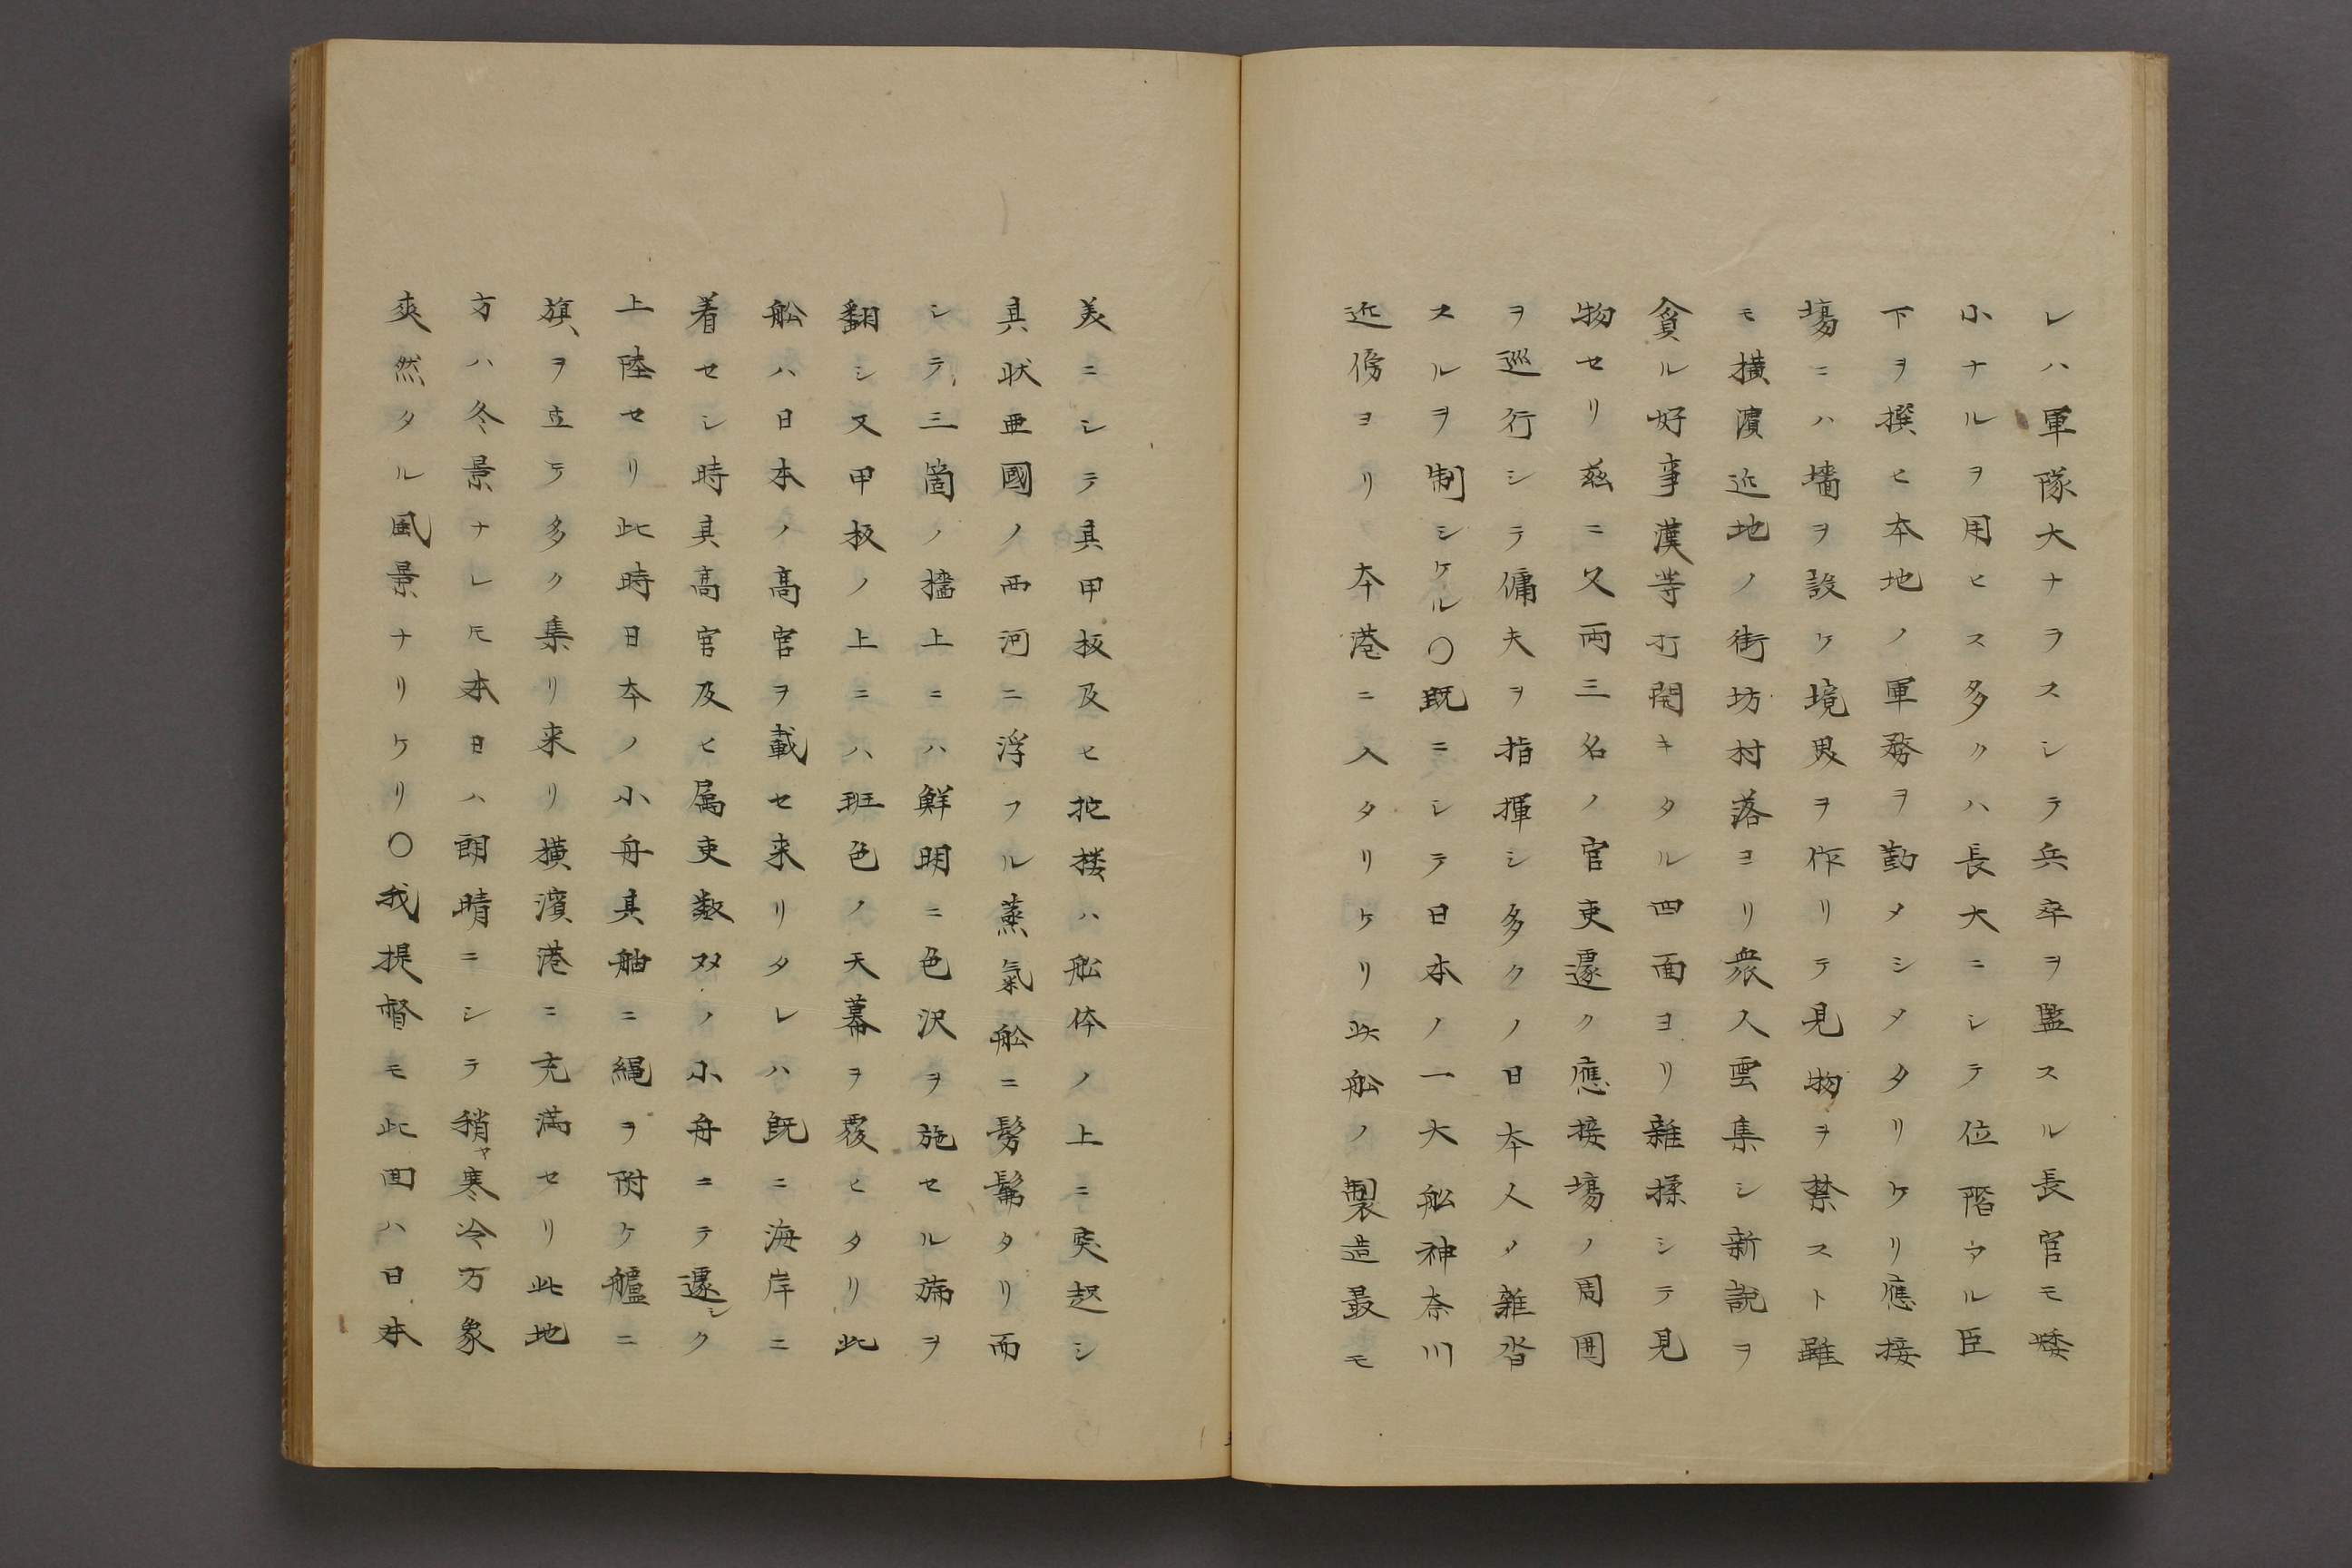 レハ軍隊大ナラスシテ兵卒ヲ監スル長官モ矮
小ナルヲ用ヒス多クハ長大ニシテ位階アル臣
下ヲ撰ヒ本地ノ軍務ヲ勤メシメタリケリ應接
場ニハ墻ヲ設ケ境界ヲ作リテ見物ヲ禁スト雖
モ横濱近地ノ街坊村落ヨリ衆人雲集シ新説ヲ
貪ル好事漢等打開キタル四面ヨリ雜揉シテ見
物セリ茲ニ又両三名ノ官吏遽ク應接場ノ周囲
ヲ巡行シテ傭夫ヲ指揮シ多クノ日本人ノ雜沓
スルヲ制シケル〇既ニシテ日本ノ一大舩神奈川
近傍ヨリ本港ニ入タリケリ此舩ノ製造最モ
美ニシテ其甲板及ヒ柁楼ハ舩体ノ上ニ突起シ
其状亜國ノ西河ニ浮フル蒸氣舩ニ髣髴タリ而
シテ三箇ノ檣上ニハ鮮明ニ色沢ヲ施セル旆ヲ
翻シ又甲板ノ上ニハ班色ノ天幕ヲ覆ヒタリ此
舩ハ日本ノ高官ヲ載セ来リタレハ既ニ海岸ニ
着セシ時其高官及ヒ属吏数双ノ小舟ニテ遽シク
上陸セリ此時日本ノ小舟其舳ニ繩ヲ附ケ艫ニ
旗ヲ立テ多ク集リ来リ横濱港ニ充満セリ此地
方ハ冬景ナレ𪜈本日ハ朗晴ニシテ稍ヤ寒冷万象
爽然タル風景ナリケリ〇我提督モ此回ハ日本